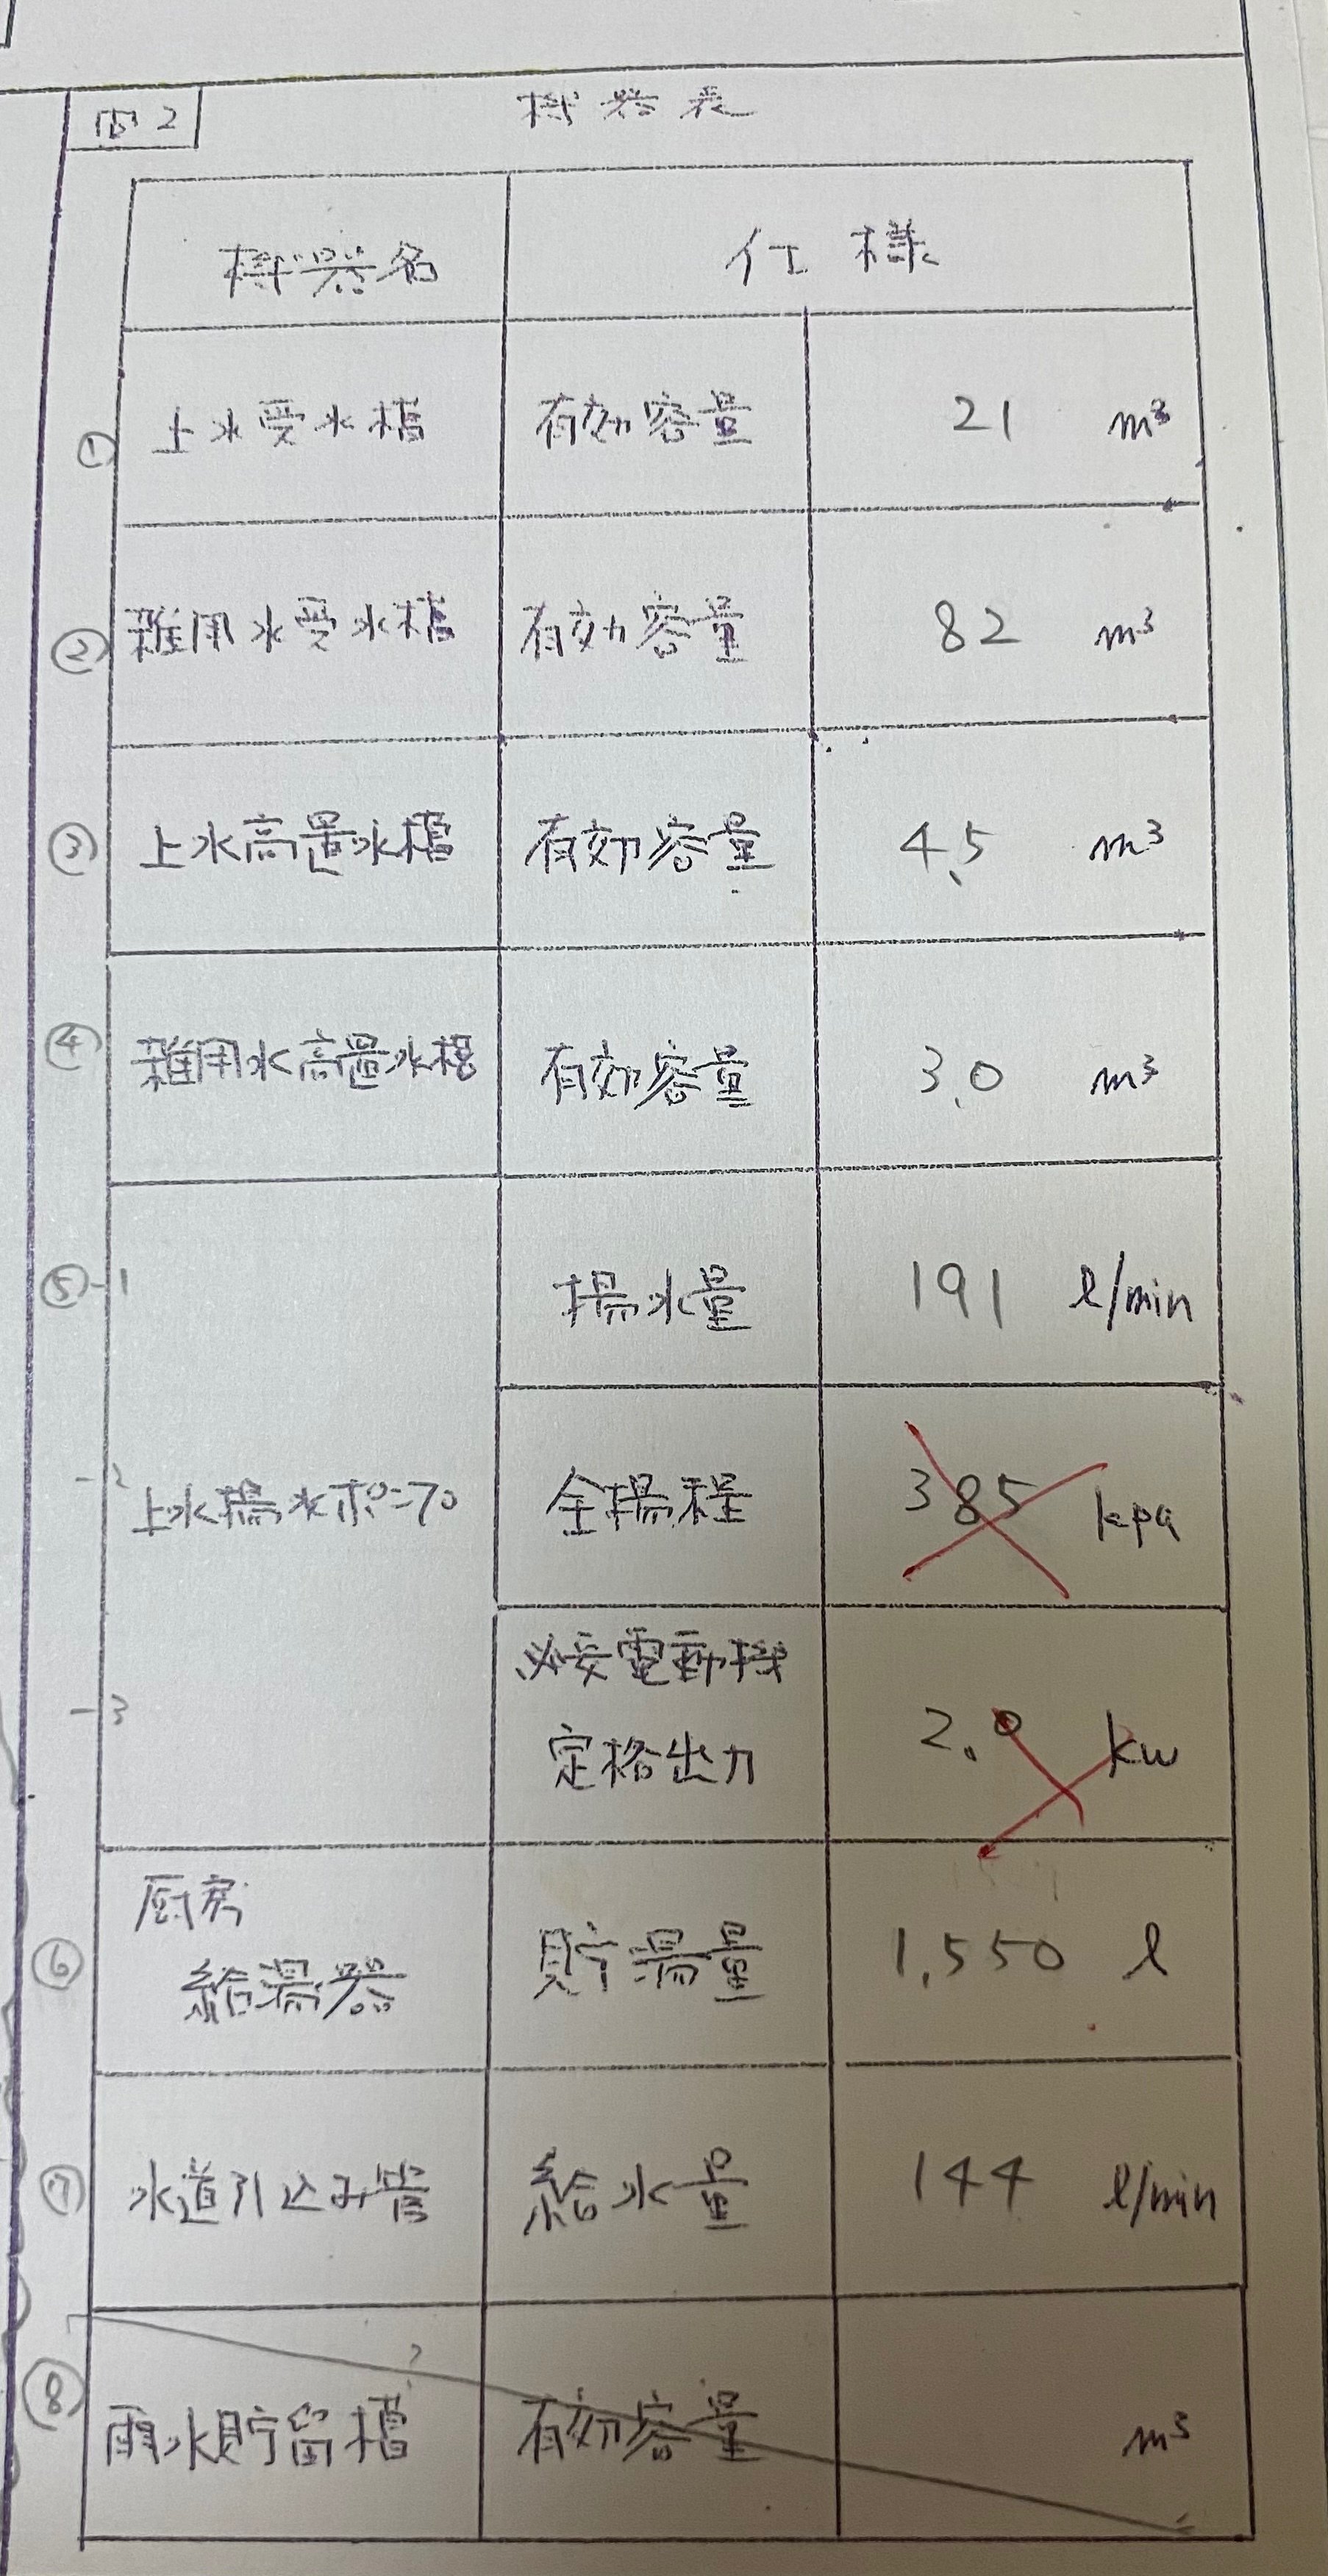 図2
機器表
機器名 仕様
① 上水受水槽 有効容量 21 m³
② 雑用水受水槽 有効容量 82 m³
③ 上水高置水槽 有効容量 4.5 m³
④ 雑用水高置水槽 有効容量 3.0 m³
⑤-1 揚水量 191 l/min
-2 上水揚水ポンプ 全揚程 385 kpa
-3 必要電動機
定格出力 2.0 kw
厨房
⑥ 給湯器 貯湯量 1,550 l
⑦ 水道引込み管 給水量 144 l/min
?
⑧ 雨水貯留槽 有効容量 m³